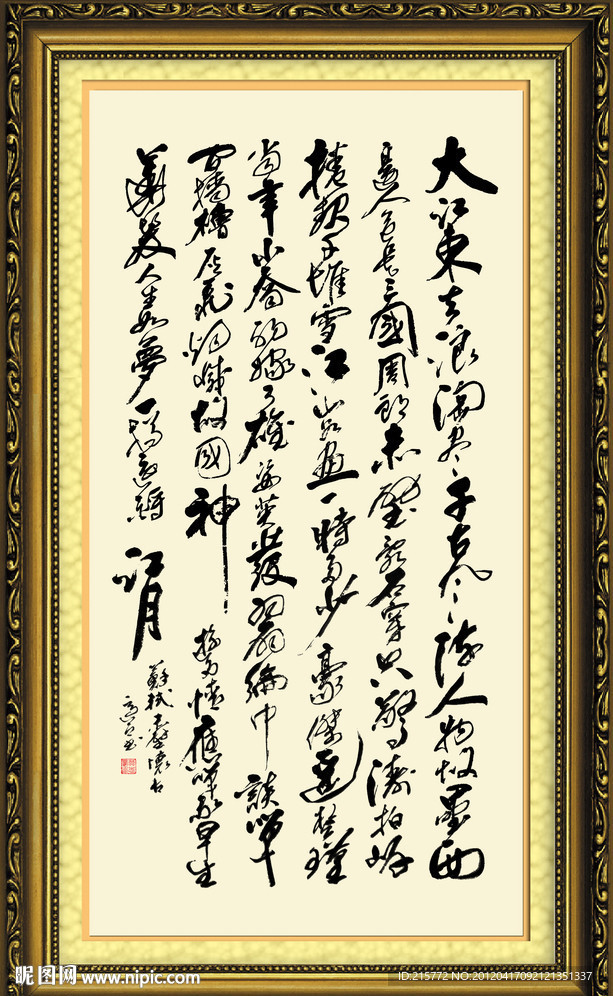 大江東去浪淘盡千古風流人物故壘西
邊人道是三國周郎赤壁亂石穿空驚濤拍岸
捲起千堆雪江山如畫一時多少豪傑遙想公瑾
當年小喬初嫁了雄姿英發羽扇綸巾談笑
間檣櫓灰飛烟滅故國神遊多情應笑我早生
華髮人生如夢一樽還酹江月
蘇軾赤壁懷古
昵图网 www.nipic.com
ID:215772 NO:20120417092121351337